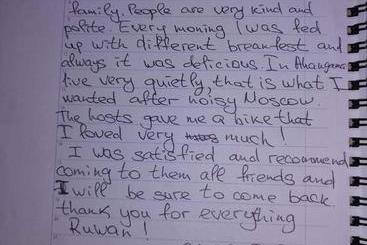 family. People are very kind and
polite. Every moning I was fed
up with different breamfest and
always it was deficious. In Ahangama
live very quietly, that is what I
wanted after noisy Moscow.
The hosts gave me a bike that
I loved very much!
I was satisfied and recommend
coming to them all friends and
I will be sure to come back
thank you for everything
Ruwan!